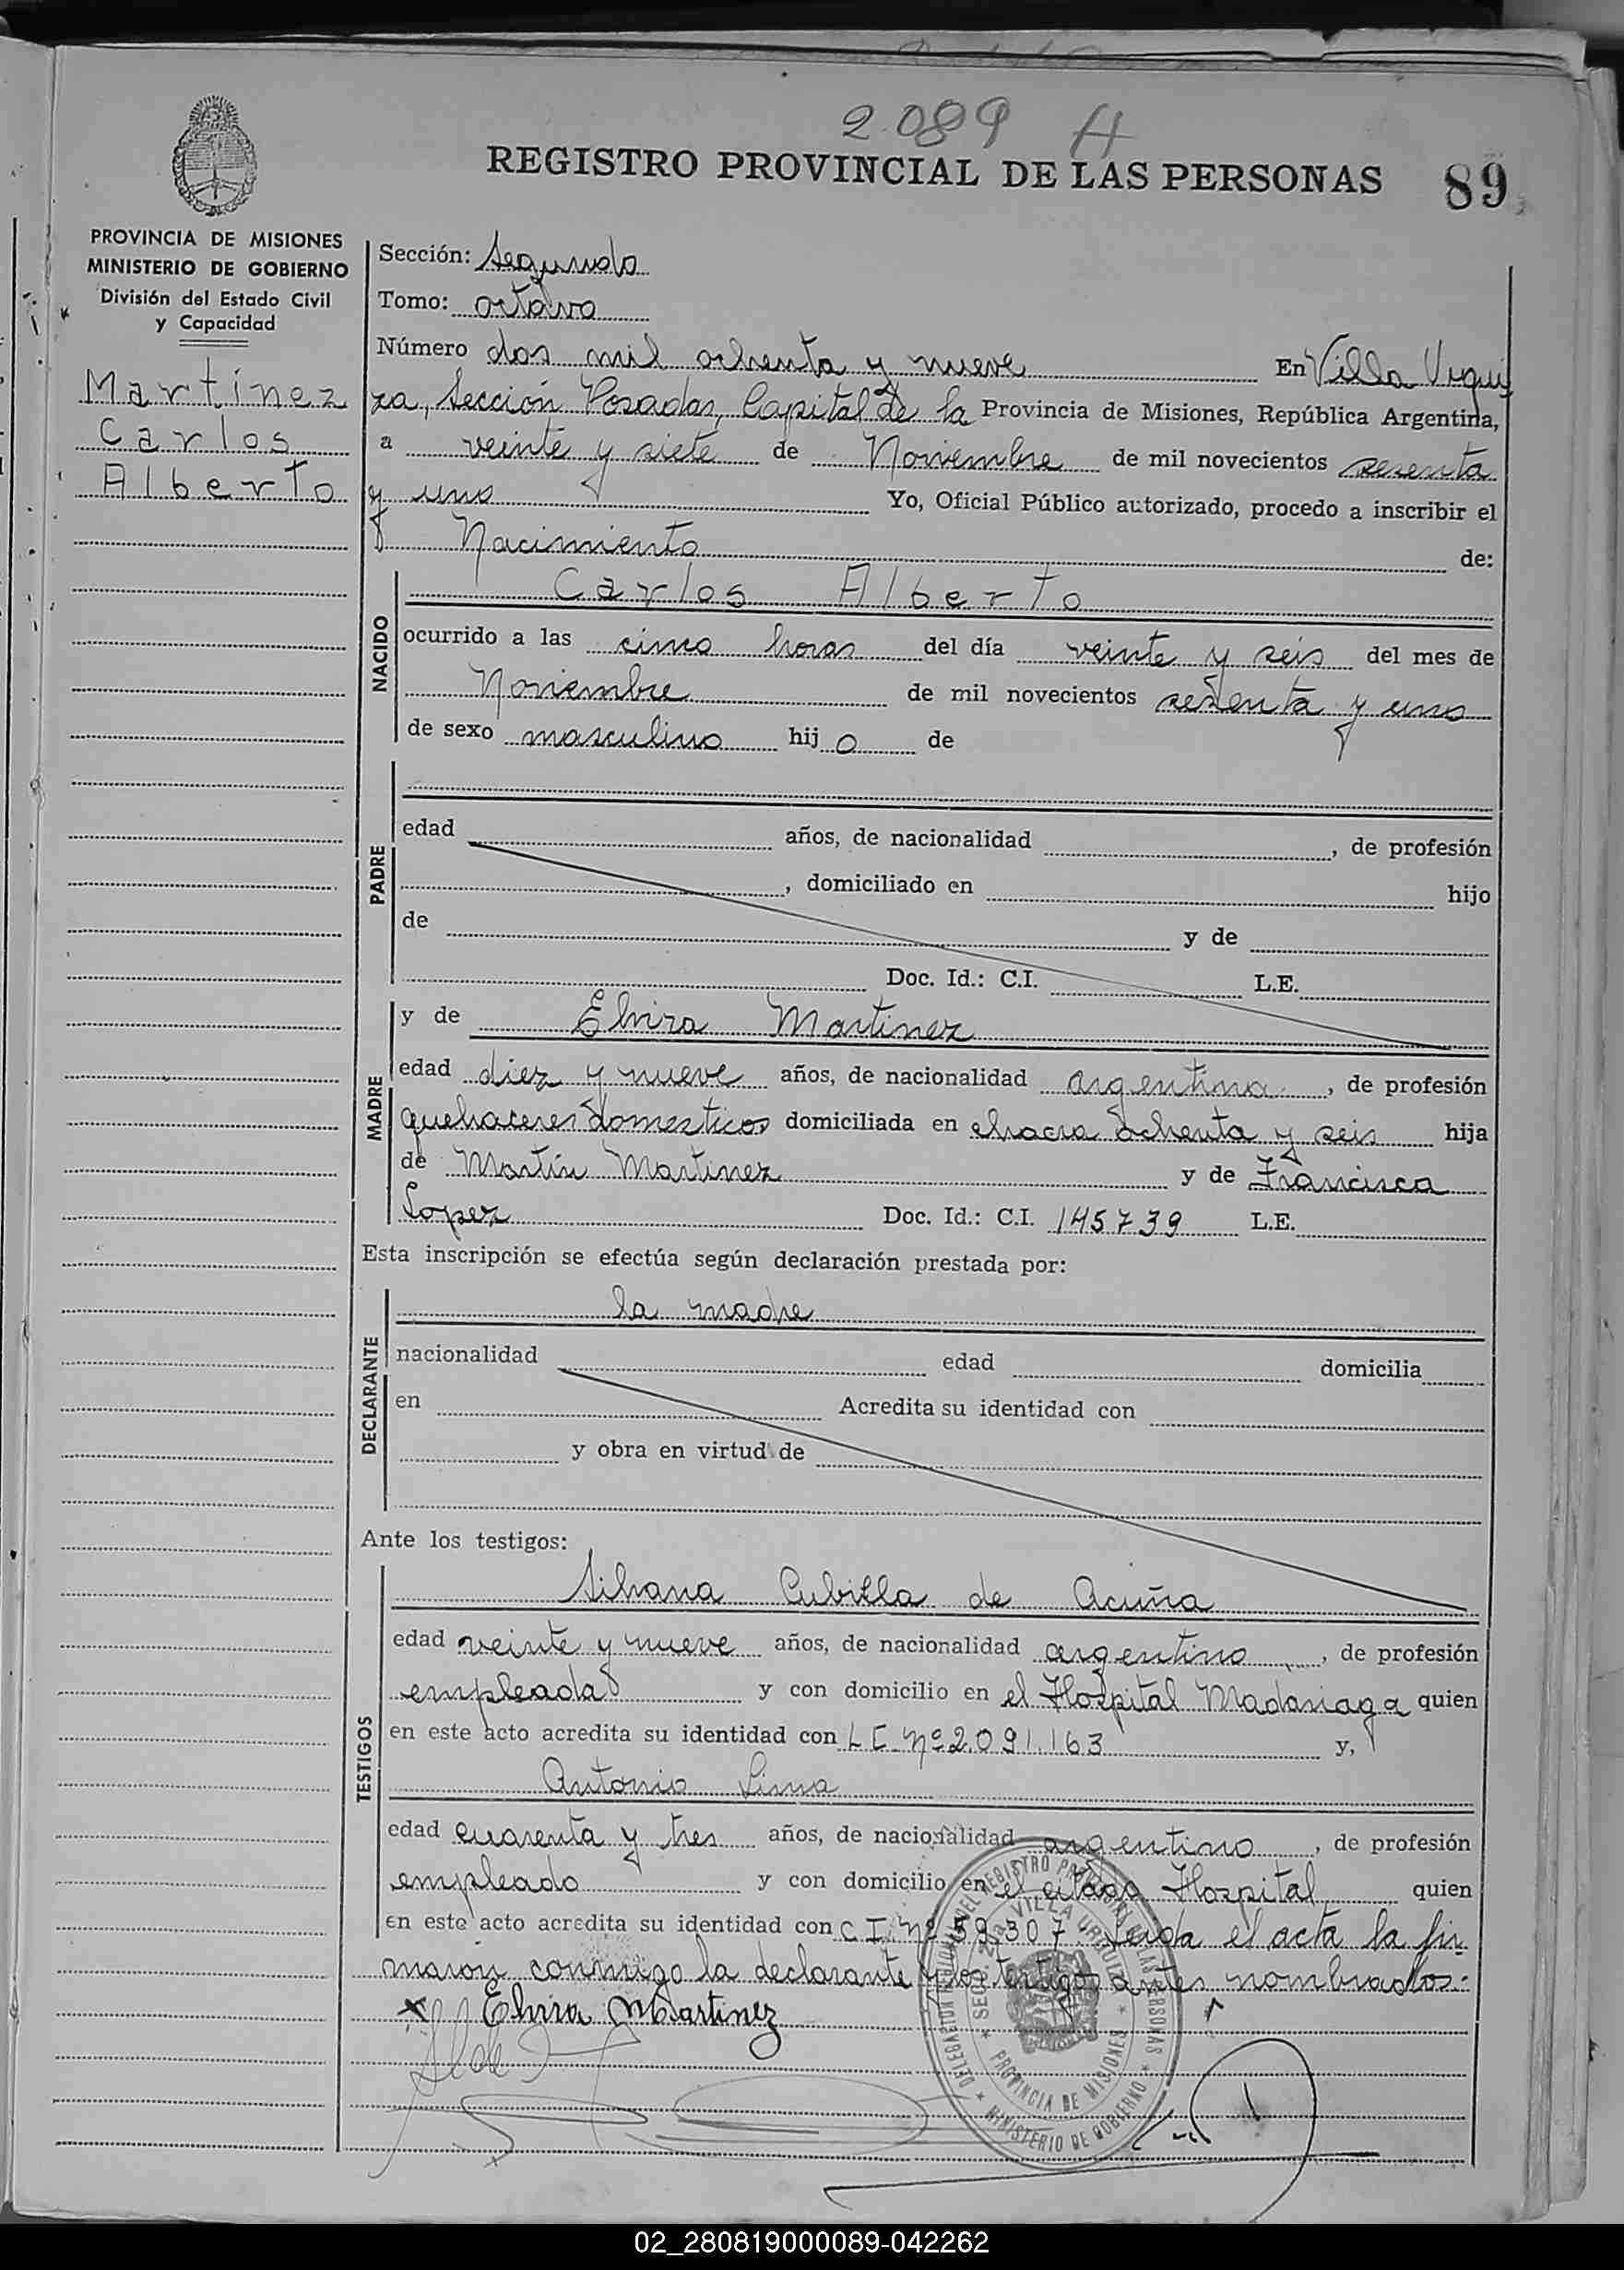 2089 H
REGISTRO PROVINCIAL DE LAS PERSONAS 89
PROVINCIA DE MISIONES
MINISTERIO DE GOBIERNO
División del Estado Civil
y Capacidad
Martínez
Carlos
Alberto
Sección: Segunda
Tomo: octavo
Número dos mil ochenta y nueve En Villa Urqui
za, Sección Posadas, Capital de la Provincia de Misiones, República Argentina,
a veinte y siete de Noviembre de mil novecientos sesenta
y uno Yo, Oficial Público autorizado, procedo a inscribir el
Nacimiento de:
NACIDO
Carlos Alberto
ocurrido a las cinco horas del día veinte y seis del mes de
Noviembre de mil novecientos sesenta y uno
de sexo masculino hijo de
PADRE
edad años, de nacionalidad , de profesión
, domiciliado en hijo
de y de
Doc. Id.: C.I. L.E.
MADRE
y de Elvira Martinez
edad diez y nueve años, de nacionalidad argentina , de profesión
quehaceres domesticos domiciliada en chacra ochenta y seis hija
de Martín Martinez y de Francisca
Lopez Doc. Id.: C.I. 145739 L.E.
Esta inscripción se efectúa según declaración prestada por:
DECLARANTE
la madre
nacionalidad edad domicilia
en Acredita su identidad con
y obra en virtud de
Ante los testigos:
TESTIGOS
Silvana Cubilla de Acuña
edad veinte y nueve años, de nacionalidad argentino , de profesión
empleada y con domicilio en el Hospital Madariaga quien
en este acto acredita su identidad con L C. Nº 2.091.163 y,
Antonio Lima
edad cuarenta y tres años, de nacionalidad argentino , de profesión
empleado y con domicilio en el citado Hospital quien
en este acto acredita su identidad con C I. Nº 59.307. Leida el acta la fir
maron conmigo la declarante y los testigos antes nombrados:
x Elvira Martinez
DELEGACION REGIONAL DEL REGISTRO PROVINCIAL DE LAS PERSONAS * MINISTERIO DE GOBIERNO *
* SEC. 2da VILLA URQUIZA * PROVINCIA DE MISIONES
02_280819000089-042262